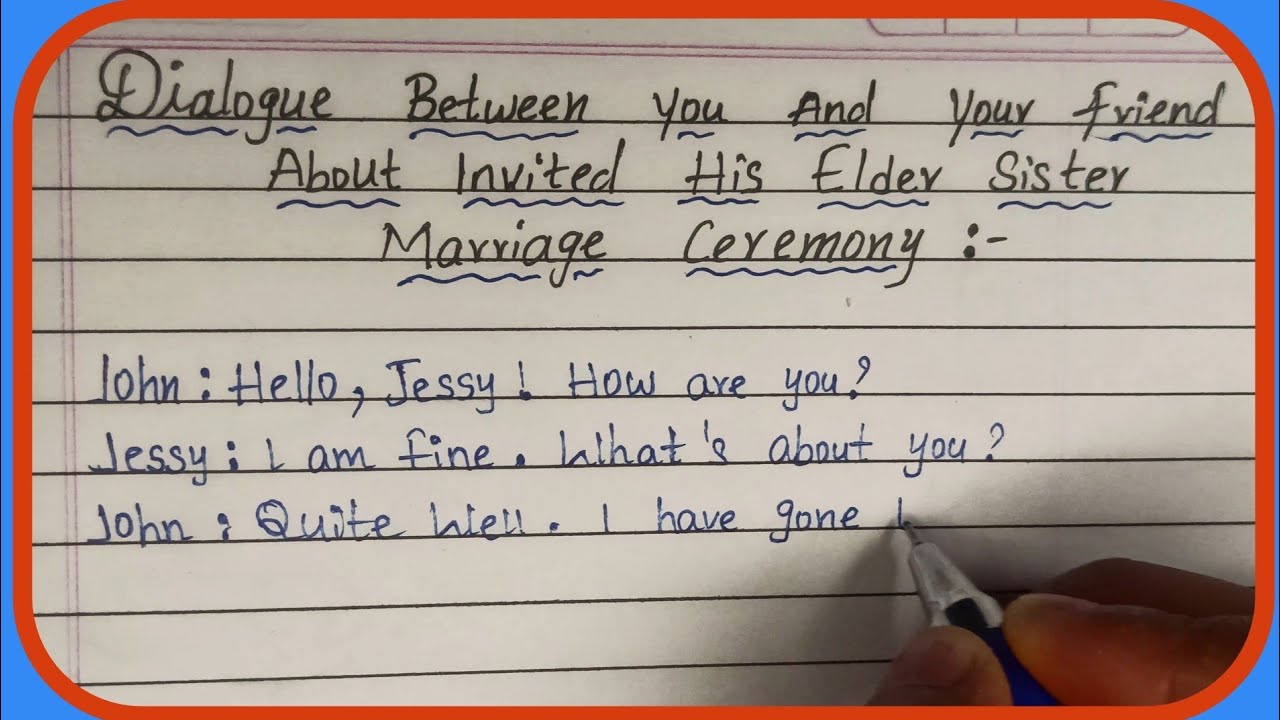 Dialogue Between You And Your Friend
About Invited His Elder Sister
Marriage Ceremony :-
John : Hello, Jessy ! How are you?
Jessy : I am fine. What's about you?
John : Quite well. I have gone